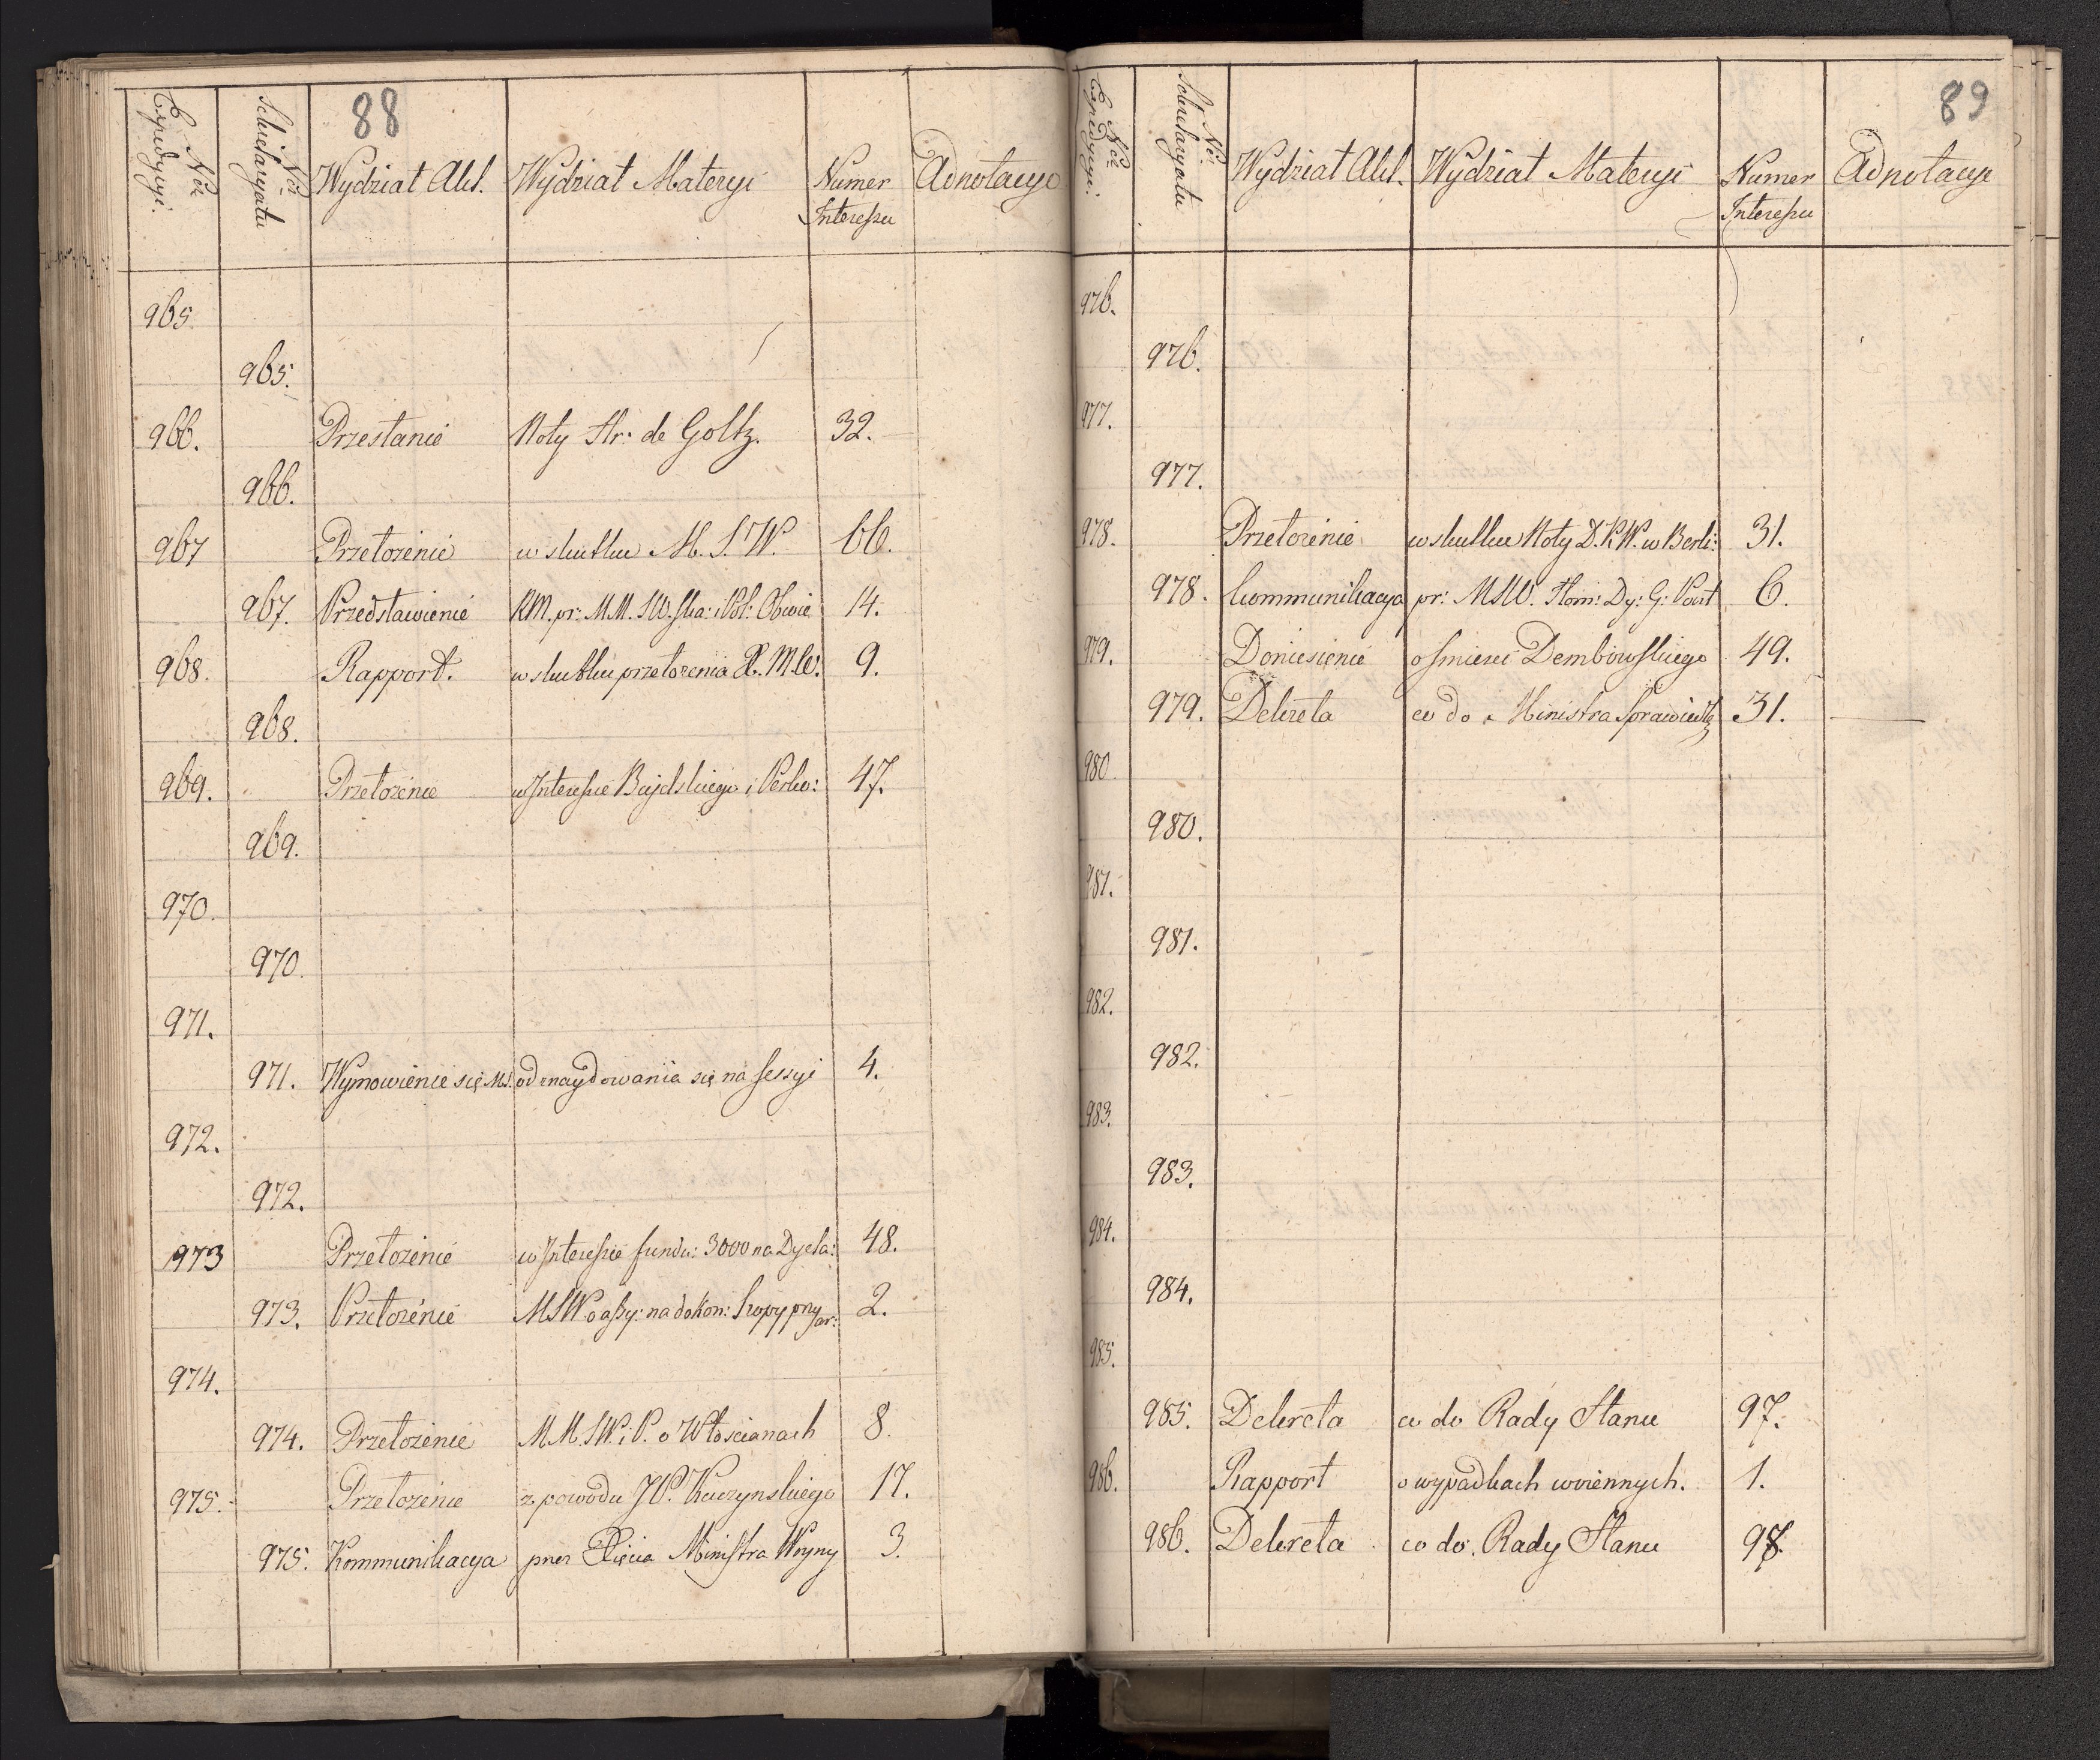 88
Nr Expedycyi. Nr Sekretaryatu Wydział Akt. Wydział Materyi Numer Interessu Adnotacye
965.
965.
966. Przesłanie Noty Hr: de Goltz. 32.
966.
967 Przełożenie w skutku M. S. W. 66.
967. Przedstawienie KM. pr: M.M. SW. Ska: i Pol: Obwie 14.
968. Rapport. w skutku przełożenia X. M.W. 9.
968.
969. Przełożenie w Interessie i 47.
969.
970.
970.
971.
971. Wymowienie się M.S. od znaydowania się na sessyi 4.
972.
972.
973 Przełożenie w Interessie fundu: 3000 na Dyeta: 48.
973. Przełożenie MSW. o assy: na dokon: Szopy przy ar: 2.
974.
974. Przełożenie M.M. SW. i P. o Włościanach 8.
975. Przełożenie z powodu JP. Kuczynskiego 17.
975. Kommunikacya przez Xięcia Ministra Woyny 3.
89
Nr Expedycyi. Nr Sekretaryatu Wydział Akt. Wydział Materyi Numer Interessu Adnotacye
976.
976.
977.
977.
978. Przełożenie w skutku Noty D. K W. w Berli: 31.
978. Kommunikacya pr: MSW. Nom: Dy: G: Poczt 6.
979. Doniesienie o śmierci Dembowskiego 49.
979. Dekreta co do Ministra Sprawiedl: 31.
980
980.
981.
981.
982.
982.
983.
983.
984.
984.
985.
985. Dekreta co do Rady Stanu 97.
986. Rapport o wypadkach woiennych. 1.
986. Dekreta co do Rady Stanu 98.